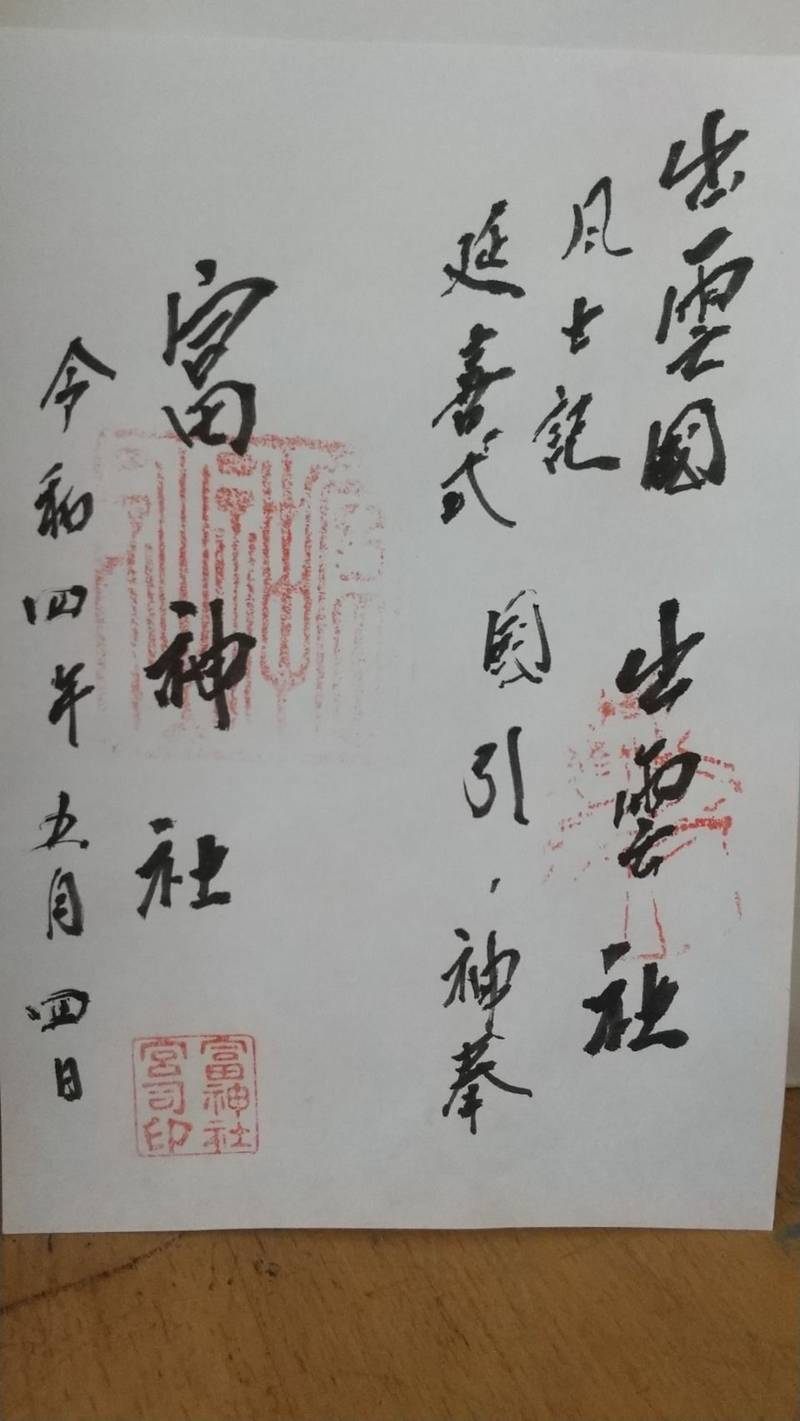 出雲國 出雲社
風土記
延喜式 國引、神
富神社
令和四年五月四日
富神社
宮司印